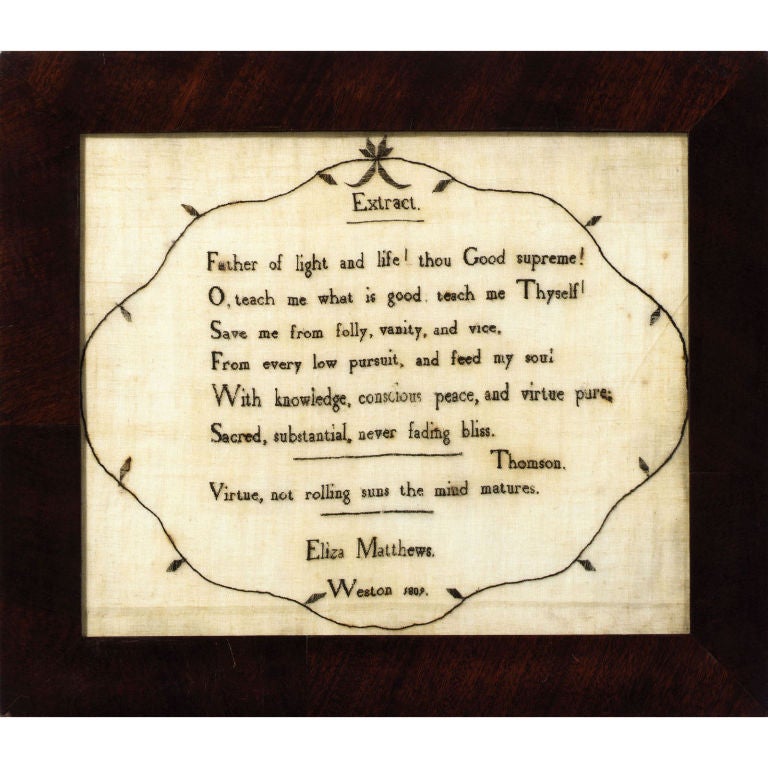 Extract.
Father of light and life! thou Good supreme!
O, teach me what is good. teach me Thyself!
Save me from folly, vanity, and vice,
From every low pursuit, and feed my soul
With knowledge, conscious peace, and virtue pure;
Sacred, substantial, never fading bliss.
Thomson.
Virtue, not rolling suns the mind matures.
Eliza Matthews.
Weston 1809.